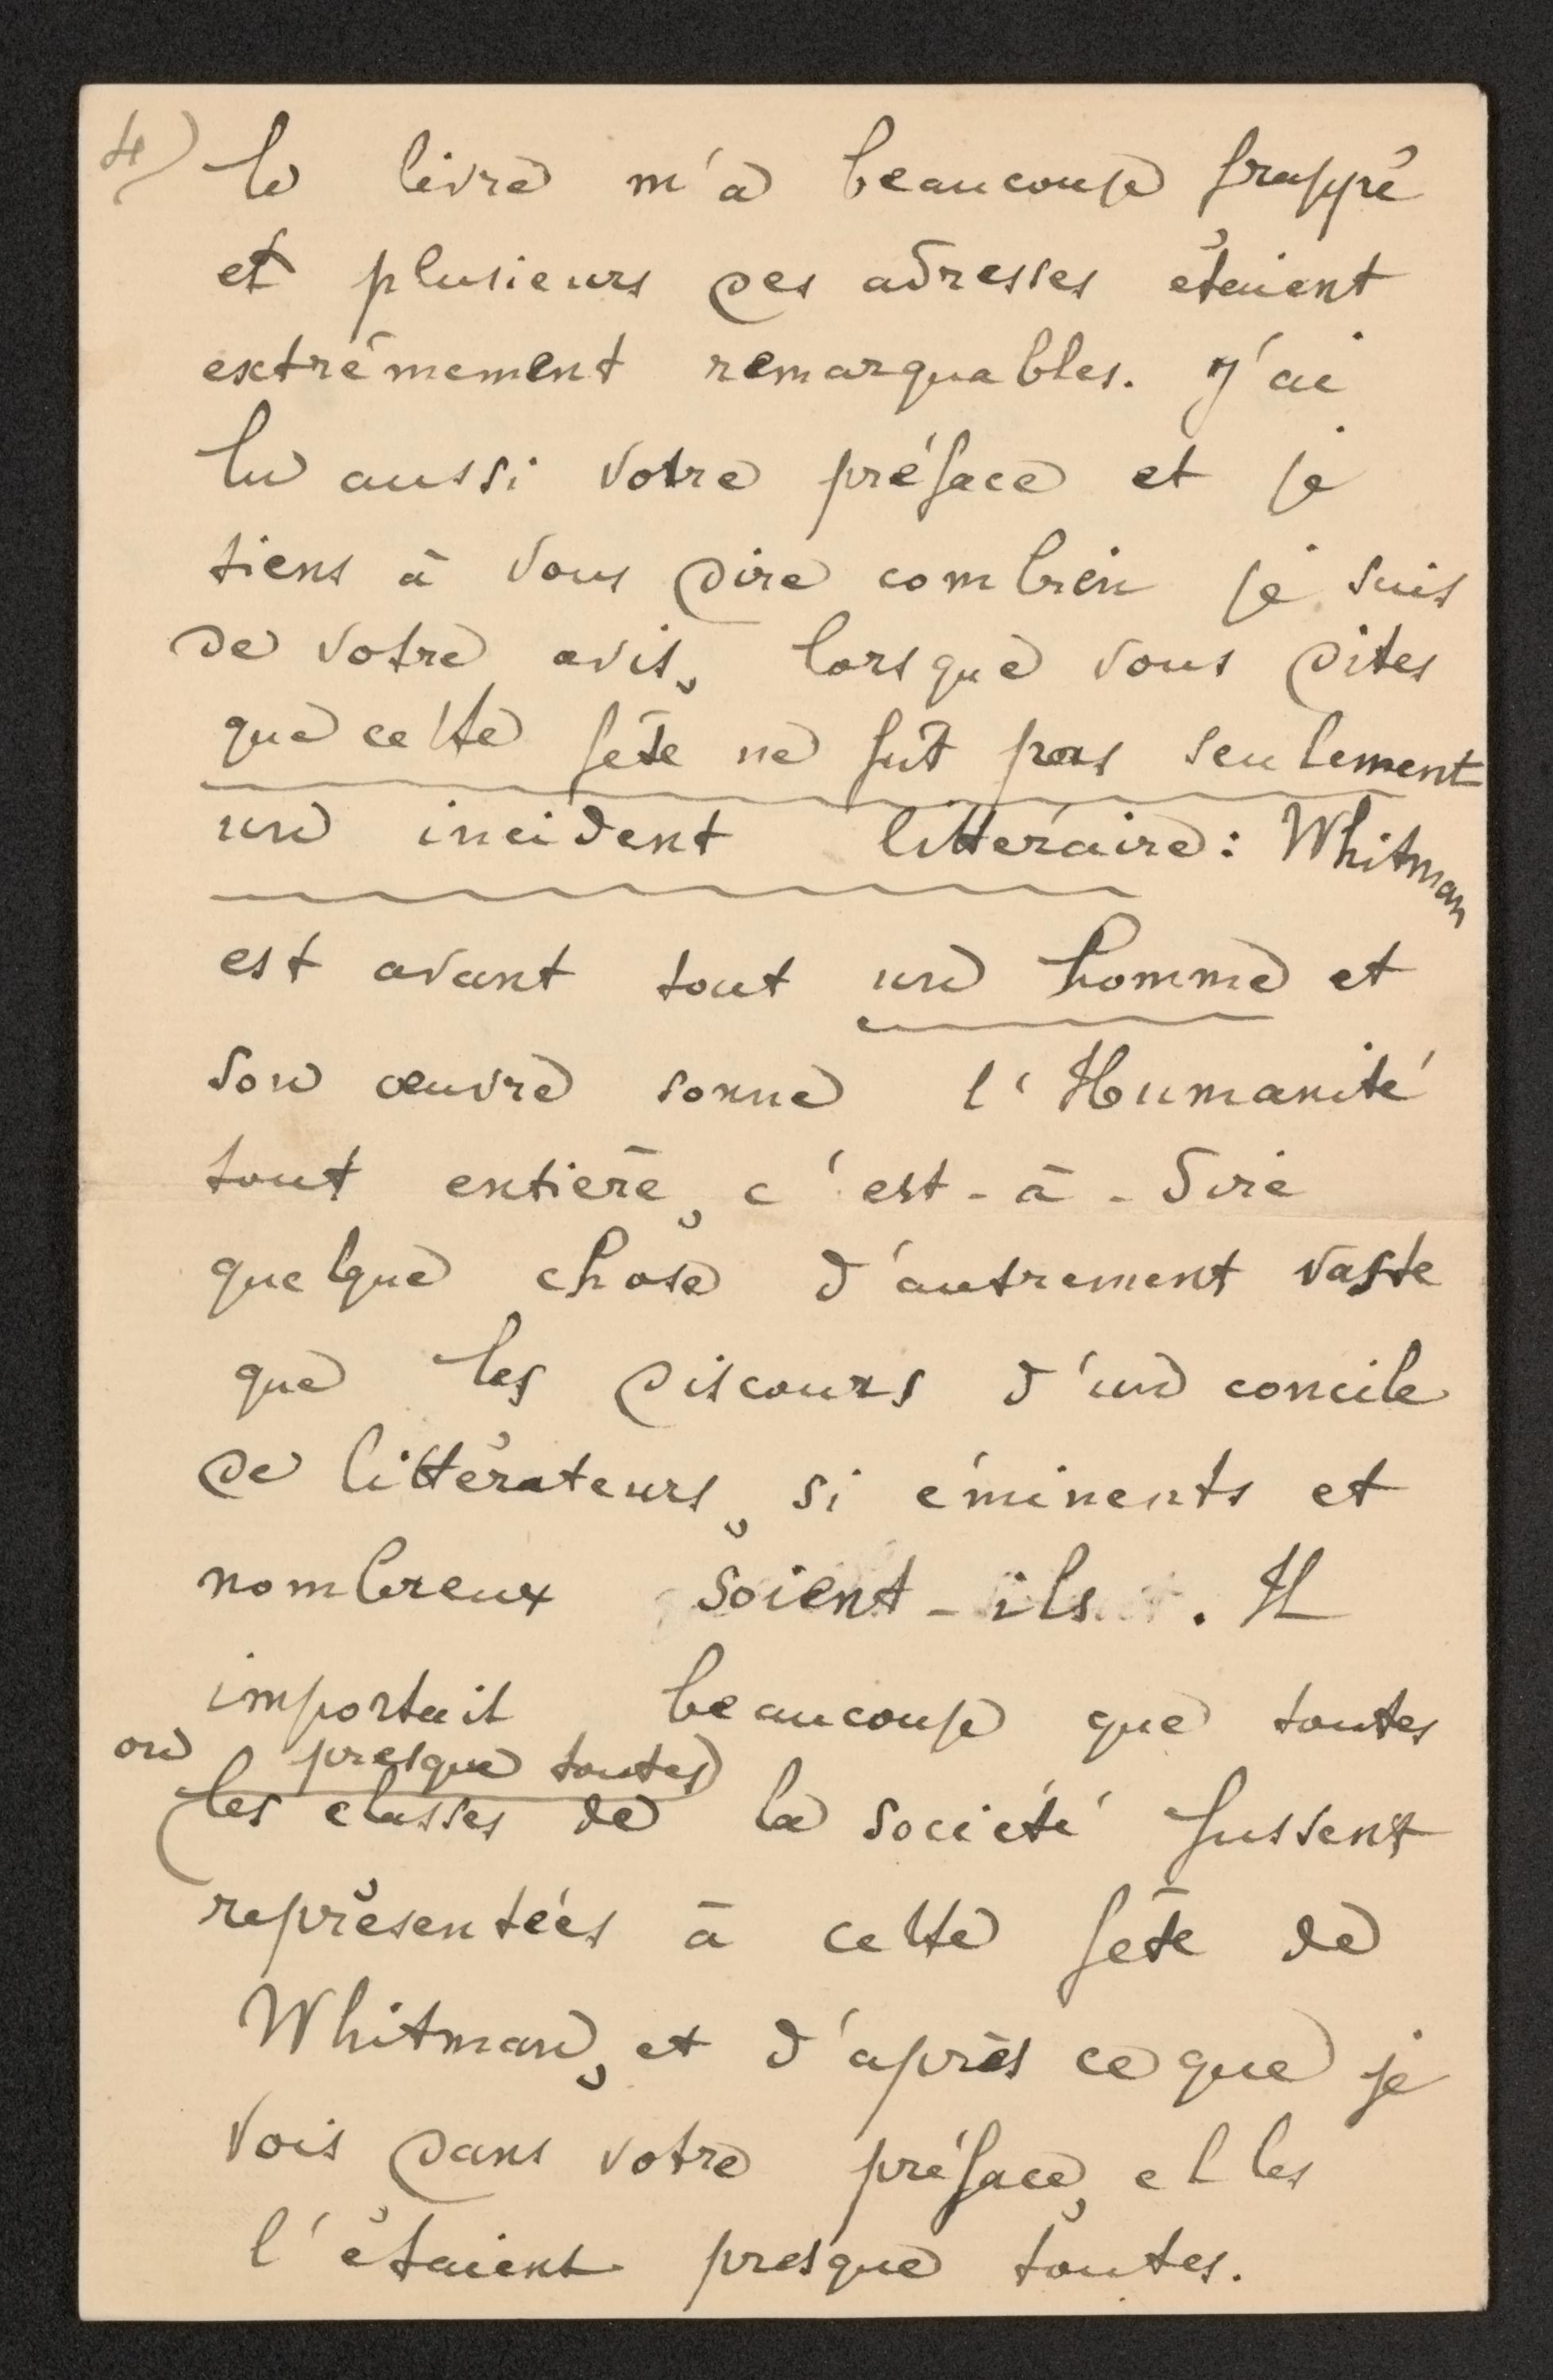 4) le livre m'a beaucoup frappé
et plusieurs des adresses étaient
extrêmement remarquables. J'ai
lu aussi votre préface et je
tiens à vous dire combien je suis
de votre avis, lorsque vous dites
que cette fête ne fut pas seulement
un incident littéraire : Whitman
est avant tout un homme et
son œuvre sonne l'Humanité
tout entière, c'est-à-dire
quelque chose d'autrement vaste
que les discours d'un concile
de littérateurs, si éminents et
nombreux soient-ils. Il
importait beaucoup que toutes
ou presque toutes)
(les classes de la société fussent
représentées à cette fête de
Whitman, et d'après ce que je
vois dans votre préface, elles
l'étaient presque toutes.